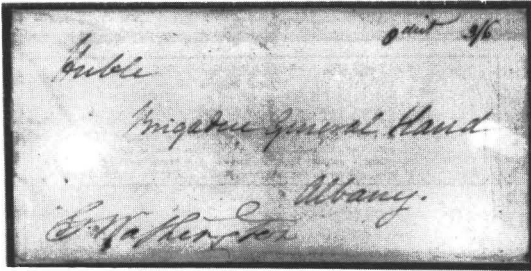 3/6
Huble
Brigadier General Hand
Albany.
G. Washington